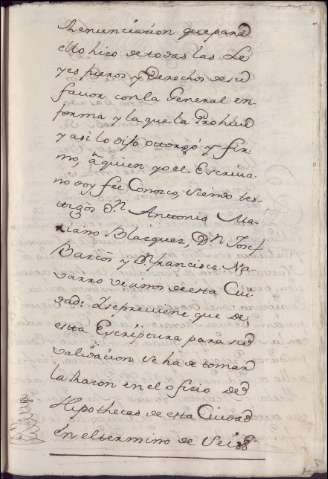 Renunciacion que para
ello hizo de todas las Le
yes fueros y derechos de su
favor con la General en
forma y la que la Prohive
y asi lo dijo otorgó y fir
mo, a quien yo el Escriva
no doy fee Conozco, siendo tes
tigos Dn Antonio Ma
riano Blazquez, Dn Josef
Barcos y Dn francisco Na
varro vecinos de esta Ciu
dad: Y se previene que de
esta Escriptura para su
validacion se ha de tomar
la Razon en el oficio de
Hipothecas de esta Ciudad
en el termino de Seis